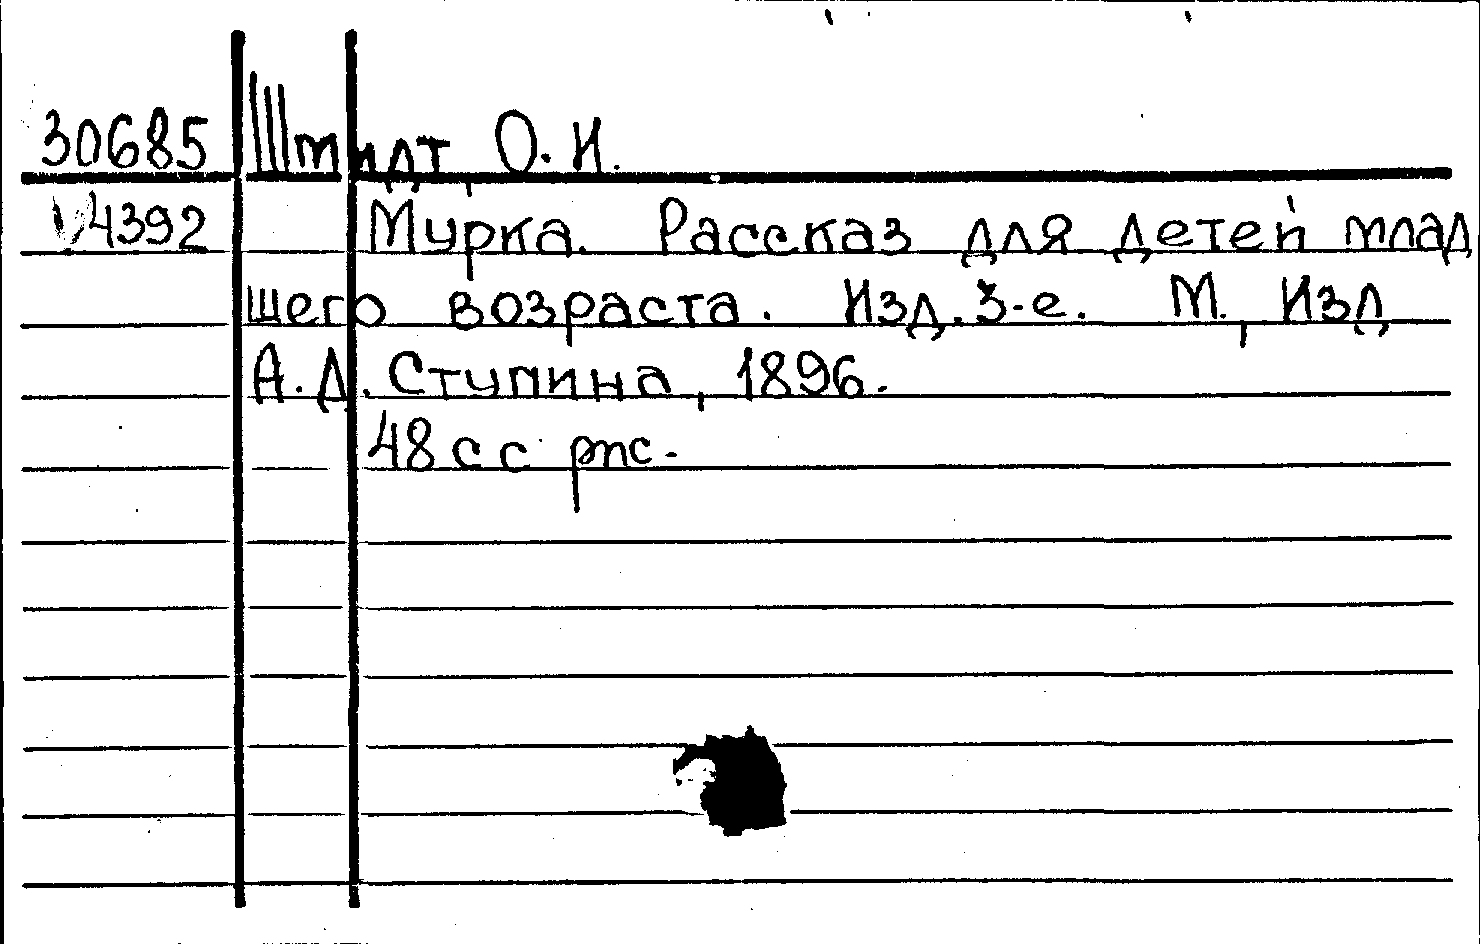 30685 Штидт, О. И.
V4392 Мурка. Рассказ для детей млад
шего возраста. Изд. 3-е. М., Изд
А. Д. Ступина, 1896.
48 с с рис.